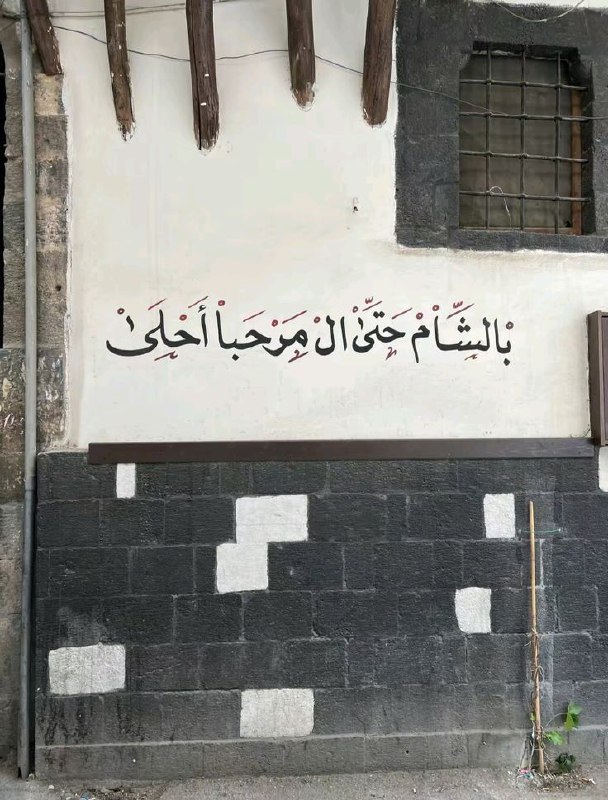 بالشَّاْم حَتىَّ ال مَرْحَبا أَحْلَىْ